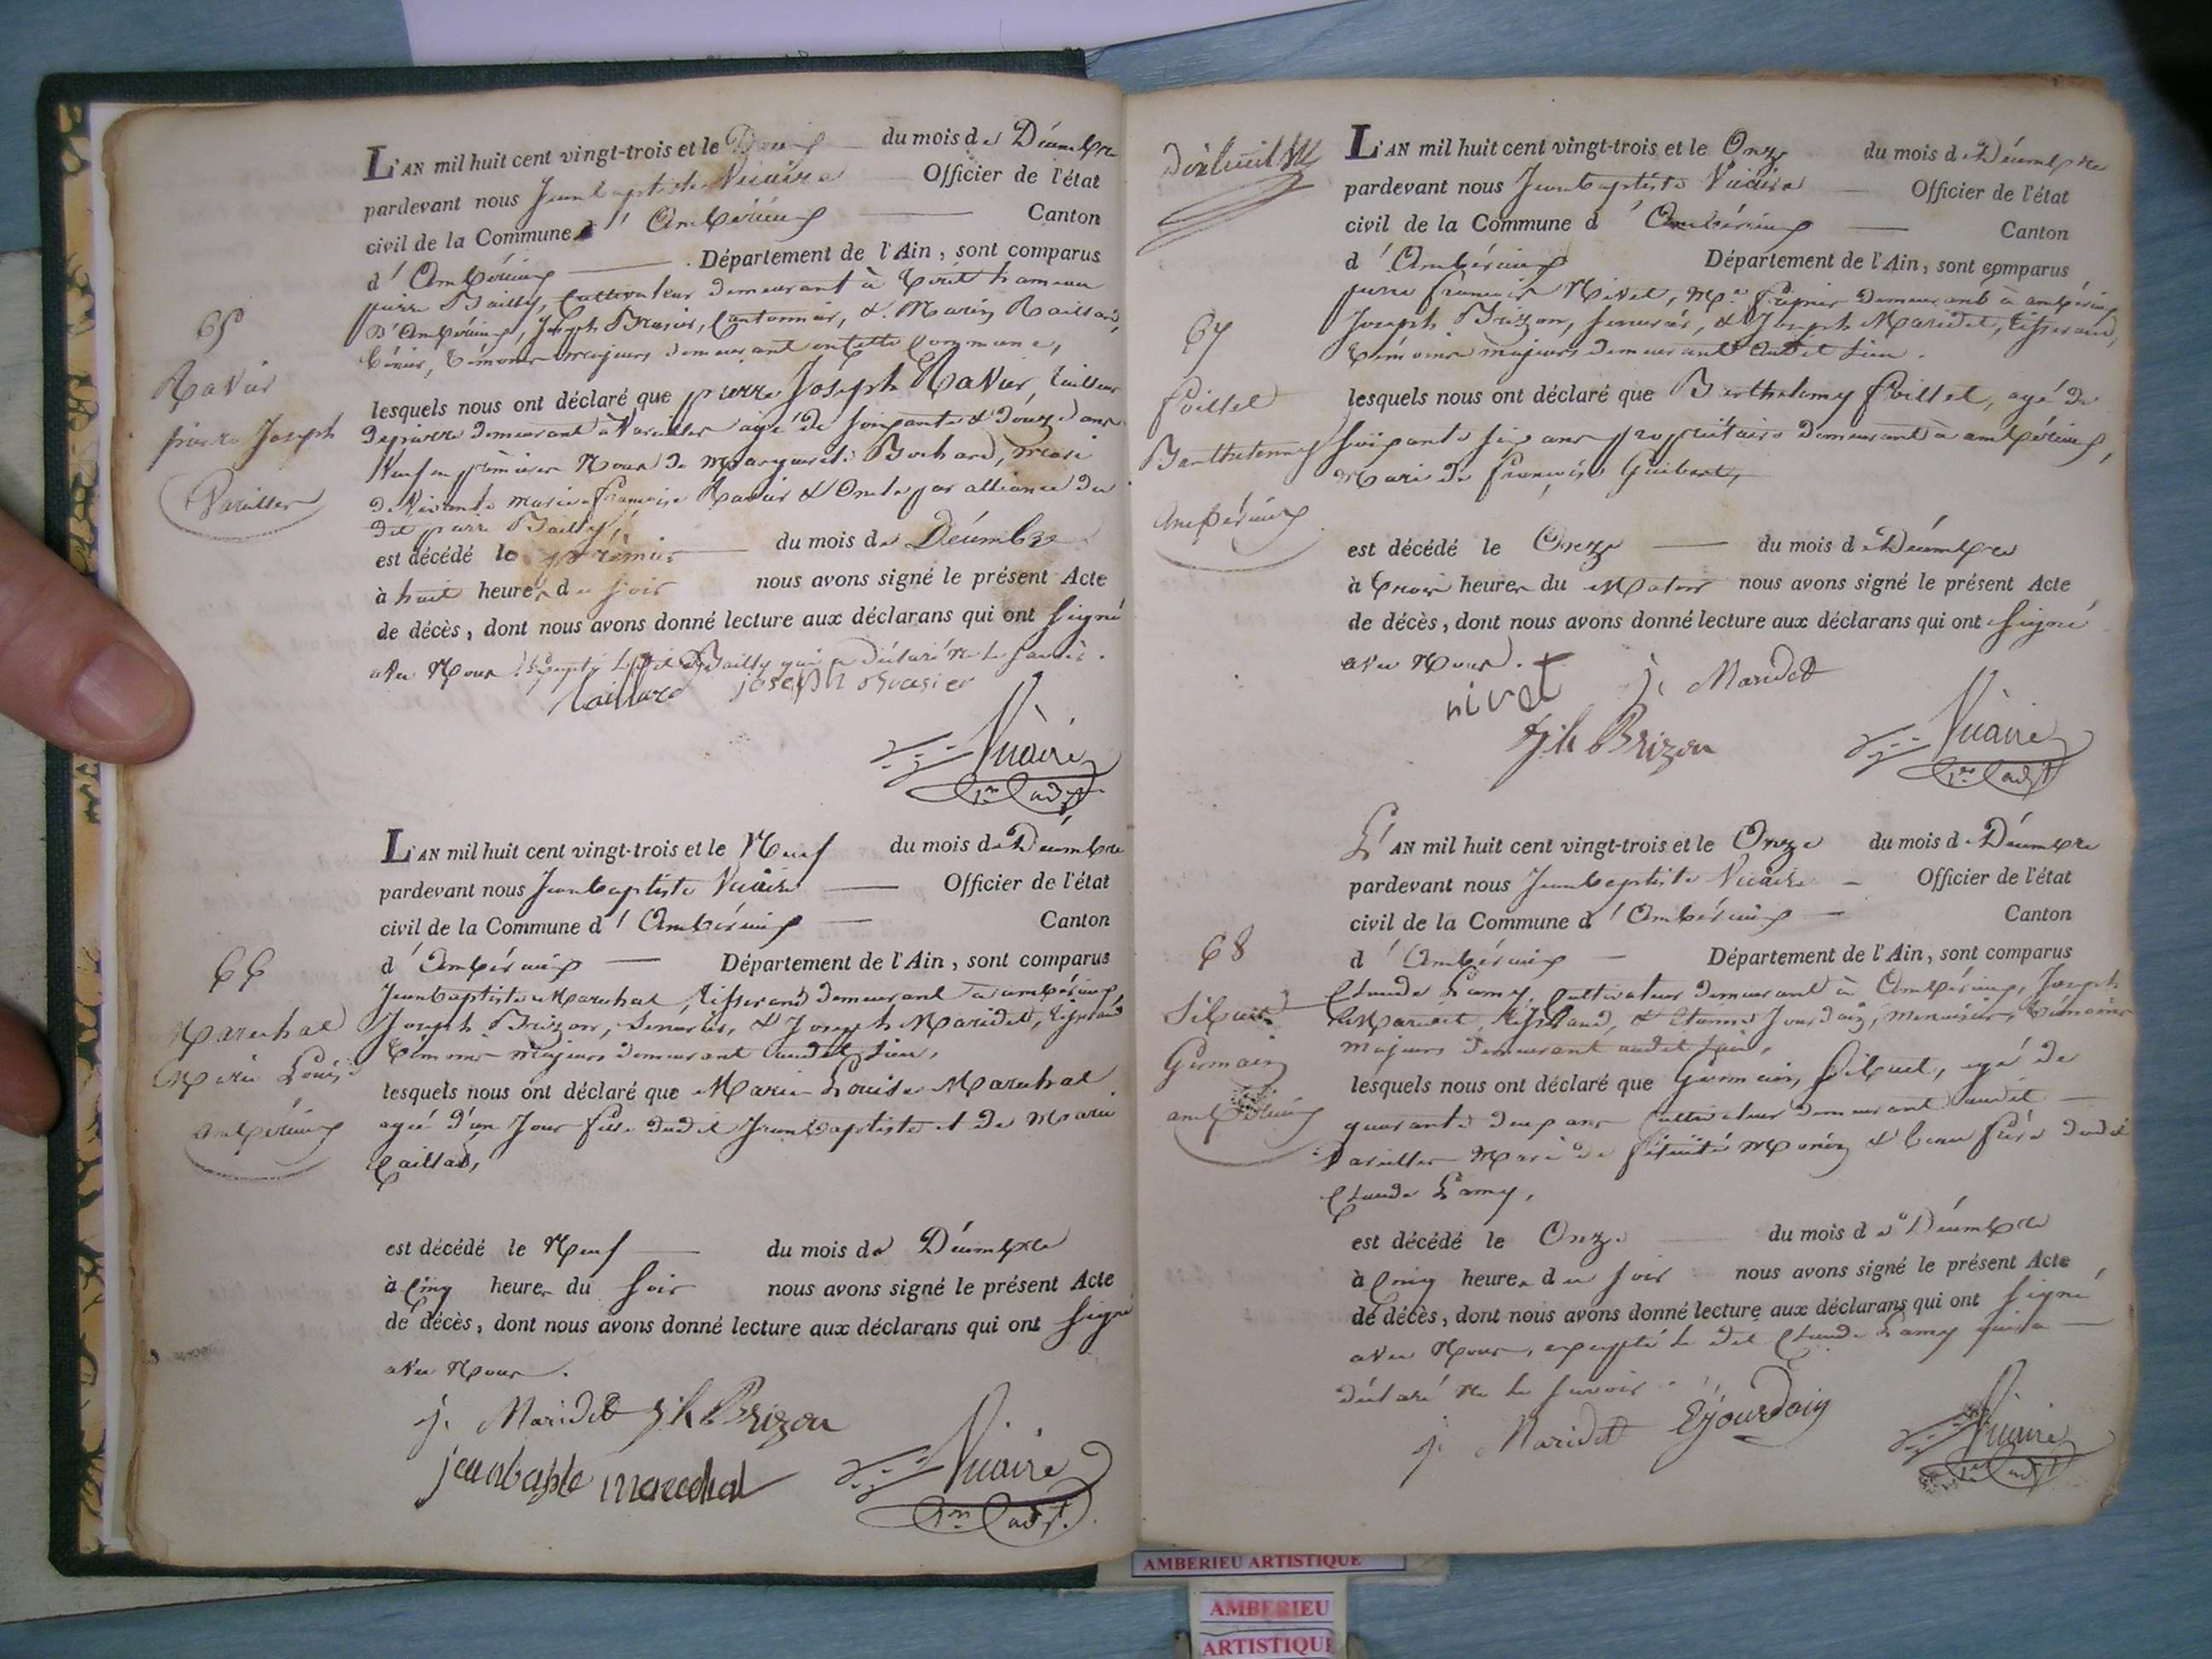 L'AN mil huit cent vingt-trois et le Deux du mois de Décembre
pardevant nous Jeanbaptiste Vicaire Officier de l'état
civil de la Commune d' Ambérieux Canton
d' Ambérieux Département de l'Ain, sont comparus
pierre Bailly, Cultivateur demeurant à hameau
D'Ambérieux, Joseph Brasier, Cantonnier, & Marin Raillard,
témoins majeurs demeurant en cette Commune,
65
Ravier
pierre Joseph
Vareilles
lesquels nous ont déclaré que pierre Joseph Ravier, tailleur
de pierre demeurant à Vareilles agé de soixante & douze ans
Veuf en premieres Noces de Marguerite Bochard, Mari
de Vivante marie françoise Ravier & Oncle par alliance du
dit pierre Bailly,
est décédé le premier du mois de Décembre
à huit heures du soir nous avons signé le présent Acte
de décès, dont nous avons donné lecture aux déclarans qui ont signé
avec Nous Excepté ledit Bailly qui a déclaré ne le savoir.
Raillard joseph Brasier
Vicaire
1er adjt
L'AN mil huit cent vingt-trois et le Neuf du mois de Décembre
pardevant nous Jeanbaptiste Vicaire Officier de l'état
civil de la Commune d' Ambérieux Canton
d' Ambérieux Département de l'Ain, sont comparus
Jeanbaptiste Marechal, tisserand demeurant à ambérieux,
Joseph Brizon, Serrurier, & Joseph Maridet, tisserand
témoins majeurs demeurant audit Lieu,
66
Marechal
Marie Louise
ambérieux
lesquels nous ont déclaré que Marie Louise Marechal
agée d'un Jour fille dudit Jeanbaptiste et de Marie
Caillat,
est décédé le Neuf du mois de Décembre
à Cinq heures du soir nous avons signé le présent Acte
de décès, dont nous avons donné lecture aux déclarans qui ont signé
avec Nous.
j. Maridet Jh Brizon
jeanbaptiste marechal
Vicaire
1er adjt.
L'AN mil huit cent vingt-trois et le Onze du mois de Décembre
pardevant nous Jeanbaptiste Vicaire Officier de l'état
civil de la Commune d' Ambérieux Canton
d' Ambérieux Département de l'Ain, sont comparus
pierre françois Nivet, Md fripier demeurant à ambérieux
Joseph Brizon, serrurier, & Joseph Maridet, tisserand,
témoins majeurs demeurant audit Lieu.
67
Foillet
Barthelemy
Ambérieux
lesquels nous ont déclaré que Barthelemy Foillet, agé de
soixante six ans propriétaire demeurant à ambérieux,
Mari de françoise Guibert,
est décédé le Onze du mois de Décembre
à trois heures du Matin nous avons signé le présent Acte
de décès, dont nous avons donné lecture aux déclarans qui ont signé
avec Nous.
nivet j. Maridet
Jh Brizon
Vicaire
1er adjt
L'AN mil huit cent vingt-trois et le Onze du mois de Décembre
pardevant nous Jeanbaptiste Vicaire Officier de l'état
civil de la Commune d' Ambérieux Canton
d' Ambérieux Département de l'Ain, sont comparus
Claude Lamy, Cultivateur demeurant à Ambérieux, Joseph
Maridet, tisserand, & Etienne Jourdain, menuisier, témoins
majeurs demeurant audit lieu,
68
Germain
ambérieux
lesquels nous ont déclaré que Germain, agé de
quarante deux ans Cultivateur demeurant audit
Vareilles Mari de félicité Monin & beau frère dudit
Claude Lamy,
est décédé le Onze du mois de Décembre
à Cinq heures du soir nous avons signé le présent Acte
de décès, dont nous avons donné lecture aux déclarans qui ont signé
avec Nous, excepté le dit Claude Lamy qui a
déclaré ne le savoir.
j. Maridet E Jourdain
Vicaire
1er adjt
AMBERIEU ARTISTIQUE
AMBERIEU
ARTISTIQUE